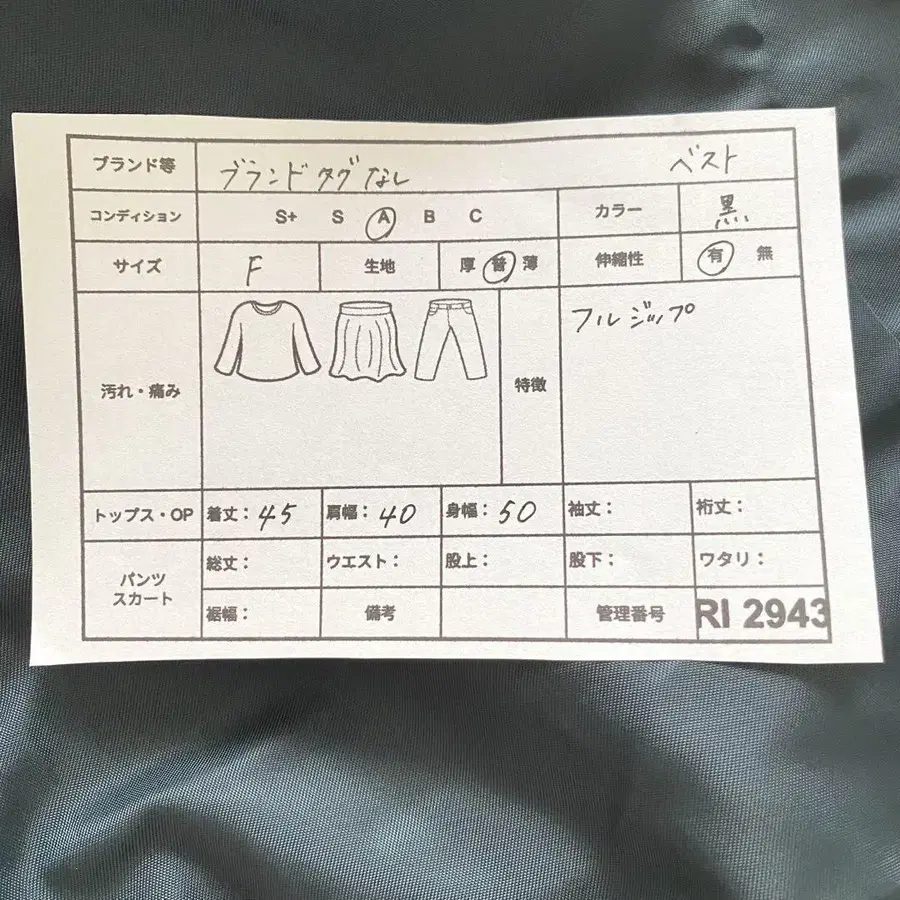 ブランド等 ブランドタグなし ベスト
コンディション S+ S A B C カラー 黒
サイズ F 生地 厚 普 薄 伸縮性 有 無
汚れ・痛み 特徴 フルジップ
トップス・OP 着丈：45 肩幅：40 身幅：50 袖丈： 裄丈：
パンツ
スカート
総丈： ウエスト： 股上： 股下： ワタリ：
裾幅： 備考 管理番号 RI 2943